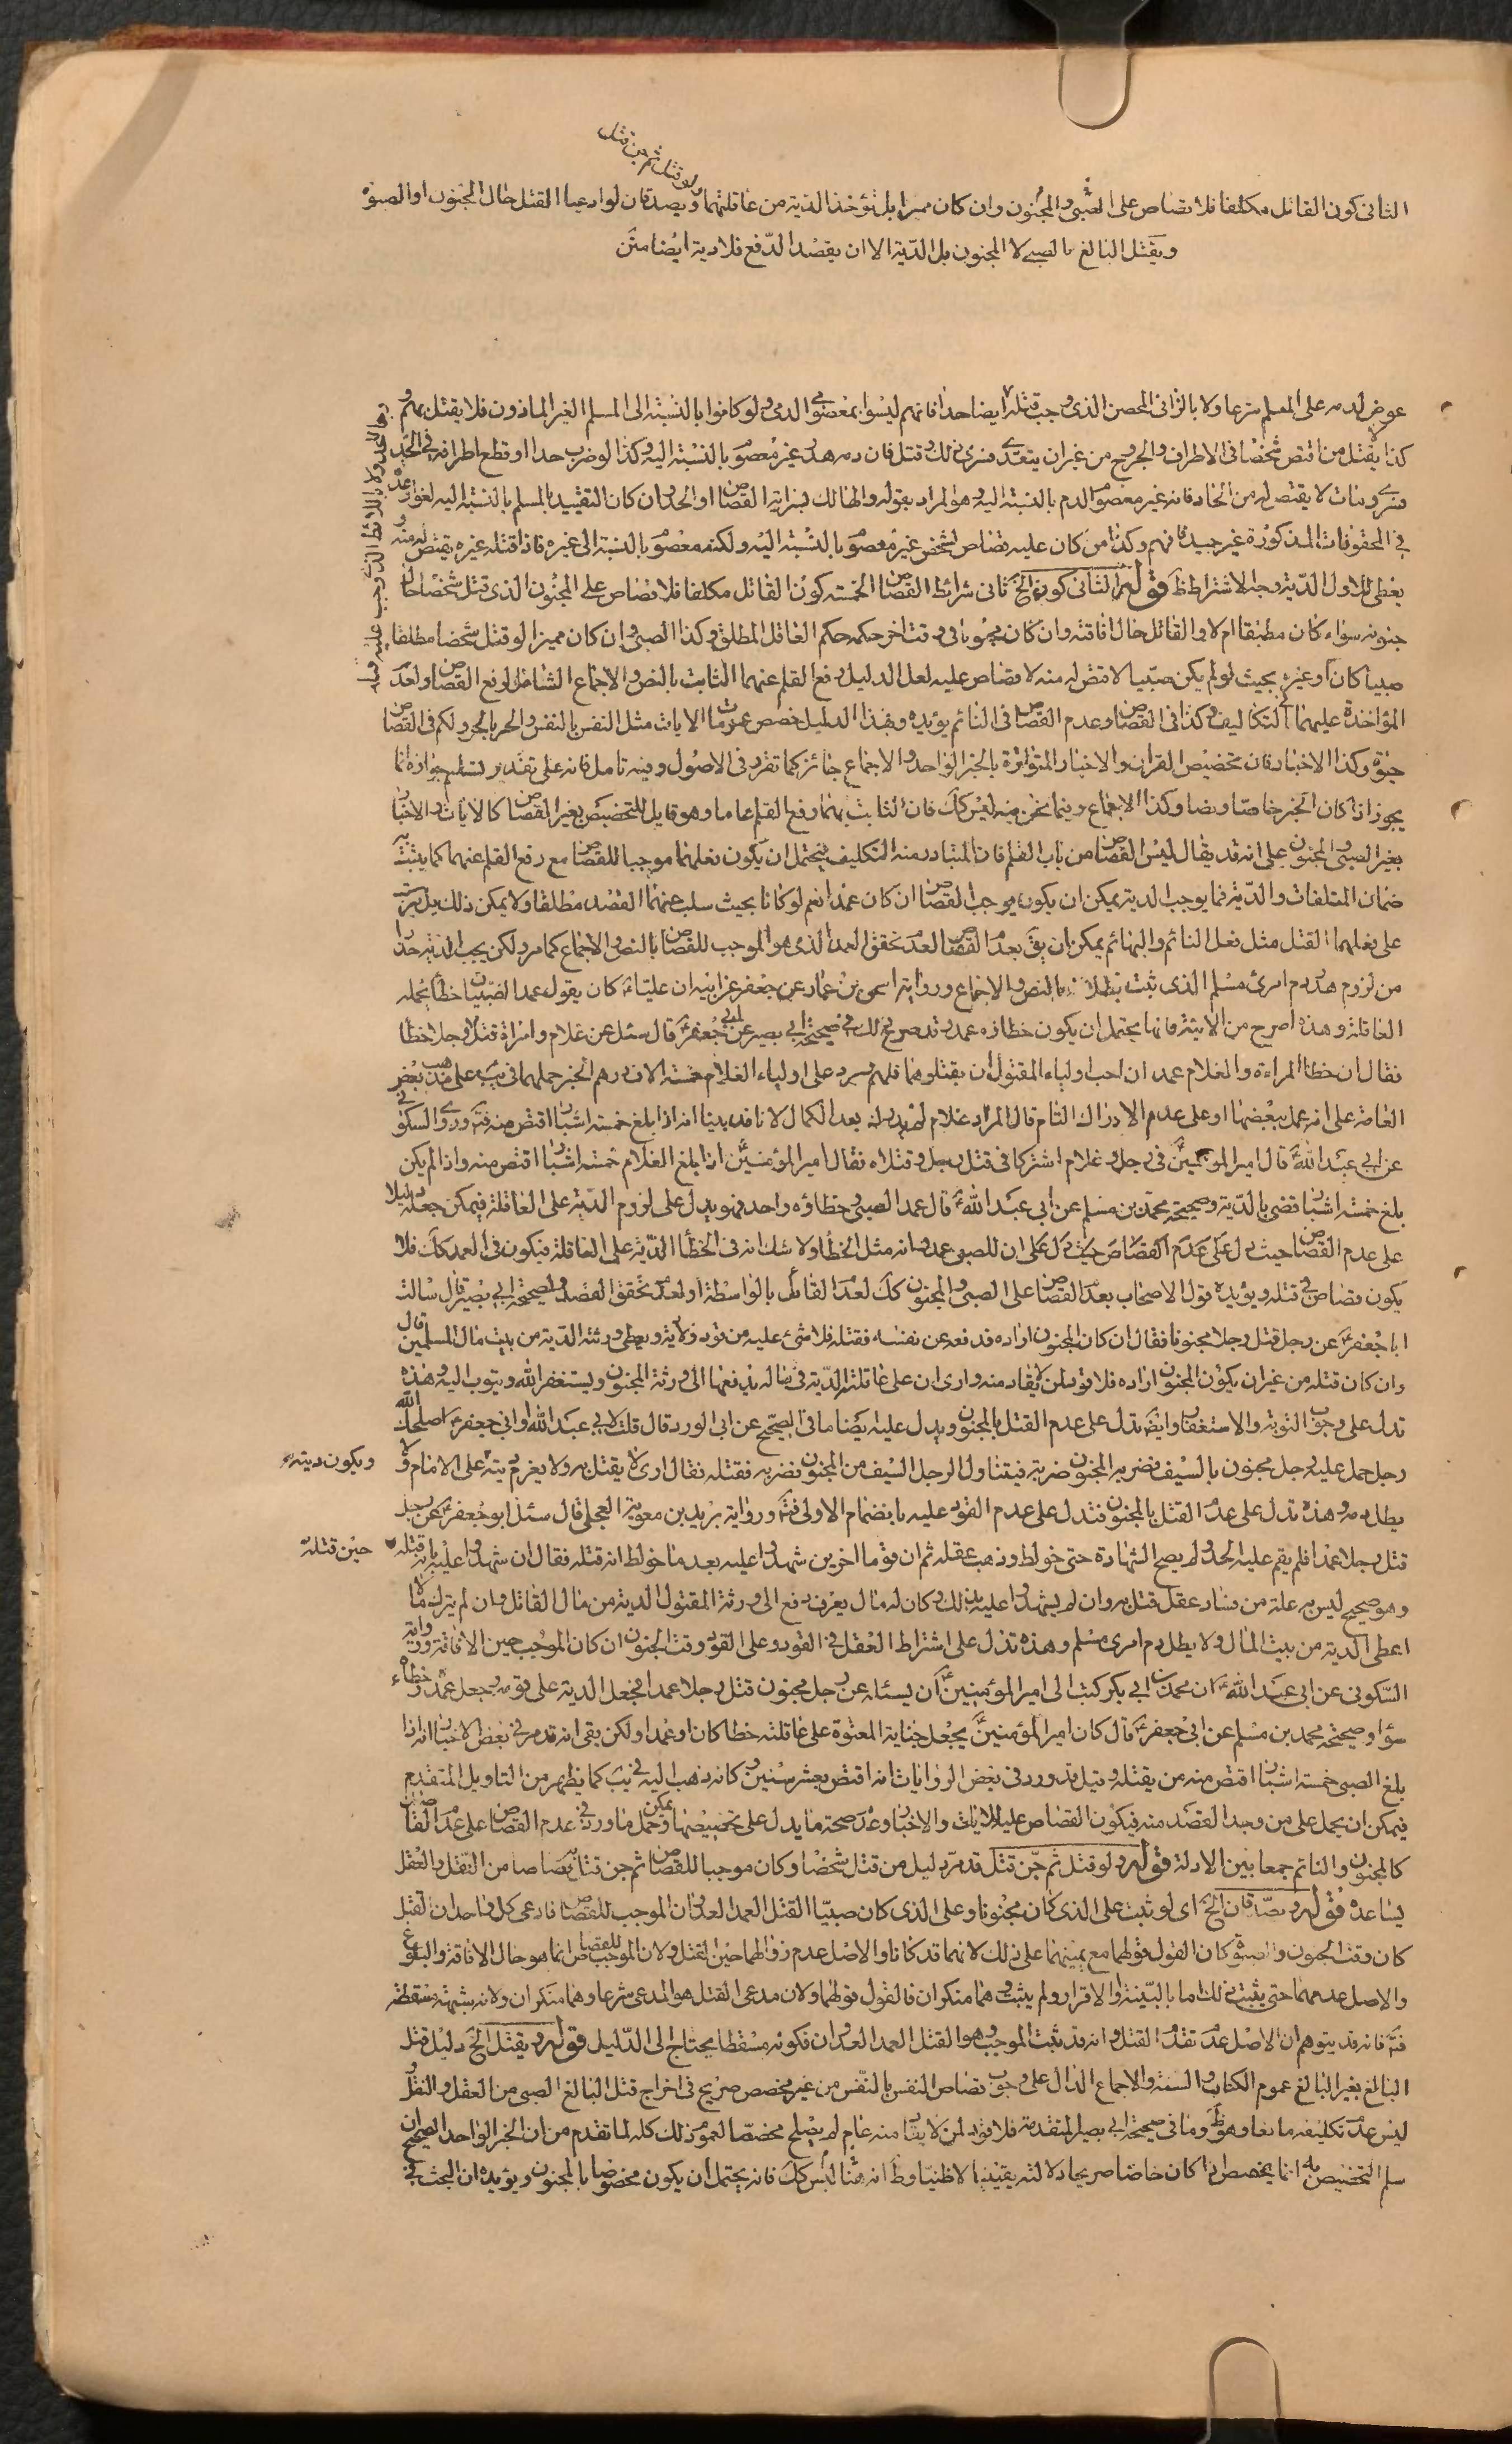 ولو قتل ثم جن قتل
الثانى كون القاتل مكلفا فلا قصاص على الصبى والمجنون وان كان مميزا بل تؤخذ الدية من عاقلتهما ويصدقان لو ادعيا القتل حال الجنون او الصبوة
ويقتل البالغ بالصبى لا المجنون بل الدّية الا ان يقصد الدّفع فلا دية ايضا
عوض لدمه على المسلم شرعا ولا بالزانى المحصن الذى وجب قتله ايضا حدا فانهم ليسوا بمعصومى الدم ولو كانوا بالنسبة الى المسلم الغير الماذون فلا يقتل بهم و
كذا لا يقتل من اقتص شخصا فى الاطراف والجروح من غير ان يتعدى فسرى ذلك وقتل فان دمه هدر غير معصوم بالنسبة اليه وكذا لو ضرب حدا او قطع اطرافه فى الحد
فسرى ومات لا يقتص له من الحاد فانه غير معصوم الدم بالنسبة اليه وهو المراد بقوله والهالك بسراية القصاص او الحد وان كان التقييد بالمسلم بالنسبة اليه لغوا
فى المحقوقات المذكورة غير جيد فافهم وكذا من كان عليه قصاص لشخص غير معصوم بالنسبة اليه ولكنه معصوم بالنسبة الى غيره فاذا قتله غيره يقتص له منه
يعطى للاول الدّية وجه الاشتراط ظ قوله الثانى كون الخ ثانى شرائط القصاص الخمسة كون القاتل مكلفا فلا قصاص على المجنون الذى قتل شخصا حال
جنونه سواء كان مطبقا ام لا والقاتل حال افاقته وان كان مجنونا فى وقت اخر حكمه حكم العاقل المطلق وكذا الصبى وان كان مميزا لو قتل شخصا مطلقا
صبيا كان او غيره بحيث لو لم يكن صبّيا لاقتص له منه لا قصاص عليه لعل الدليل رفع القلم عنهما الثابت بالنص والاجماع الشامل لرفع القصاص ولعدم
المؤاخذة عليهما فى التكاليف وكذا فى القصاص وعدم القصاص فى النائم يؤيده وبهذا الدليل خصص عمومات الايات مثل النفس بالنفس والحر بالحر ولكم فى القصاص
حيوة وكذا الاخبار فان تخصيص القران والاخبار المتواترة بالخبر الواحد والاجماع جائز كما تقرر فى الاصول وفيه تامل فانه على تقدير تسليم جوازه انما
يجوز اذا كان الخبر خاصّا ونصا وكذا الاجماع وفيما نحن فيه ليس كك فان الثابت بهما رفع القلم عاما وهو قابل للتخصيص بغير القصاص كالايات والاخبار
بغير الصبى والمجنون على انه قد يقال ليس القصاص من باب القلم فان المتبادر منه التكليف فيحتمل ان يكون فعلهما موجبا للقصاص مع رفع القلم عنهما كما يثبت به
ضمان المتلفات والدّية فما يوجب الدية يمكن ان يكون موجب القصاص ان كان عمدا نعم لو كانا بحيث سلب عنهما القصد مطلقا ولا يمكن ذلك بل يترتب
على فعلهما القتل مثل فعل النائم والبهائم يمكن ان يق بعدم القصاص لعدم تحقق العمد الذى هو الموجب للقصاص بالنص والاجماع كما مر ولكن يجب الدية حذرا
من لزوم هدر دم امرئ مسلم الذى ثبت بطلانه بالنص والاجماع ورواية اسحق بن عمار عن جعفر عن ابيه ان عليّا ع كان يقول عمد الصبيان خطأ تحمله
العاقلة وهذه اصرح من الاية فانها يحتمل ان يكون خطاؤه عمد وقد صرح ذلك فى صحيحة ابى بصير عن ابى جعفر ع قال سئل عن غلام وامراة قتلا رجلا خطأ
فقال ان خطأ المراءة والغلام عمد ان احب اولياء المقتول ان يقتلوهما قتلوهم ويرد على اولياء الغلام خمسة الاف درهم الخبر حملهما فى يب على مذهب بعض
العامة على انه عمد ببعضها او على عدم الادراك التام قال المراد غلام لم يدرك بعد الكمال لانا قد بينا انه اذا بلغ خمسة اشبار اقتص منه فتر وروى السكونى
عن ابى عبد الله ع قال امير المؤمنين ع فى رجل وغلام اشتركا فى قتل رجل وقتلاه فقال امير المؤمنين ع اذا بلغ الغلام خمسة اشبار اقتص منه واذا لم يكن
بلغ خمسة اشبار قضى بالدّية وصحيحة محمد بن مسلم عن ابى عبد الله ع قال عمد الصبى وخطاؤه واحد فهو يدل على لزوم الدّية على العاقلة فيمكن جعله دليلا
على عدم القصاص حيث دل على عدم القصاص حيث دل على ان للصبى عمد وانه مثل الخطأ ولا شك انه فى الخطأ الدّية على العاقلة فيكون فى العمد كك فلا
يكون قصاص فى قتله ويؤيده قول الاصحاب بعدم القصاص على الصبى والمجنون كك لعدم القائل بالواسطة او لعدم تحقق القصد ولصحيحة ابى بصير قال سالت
ابا جعفر ع عن رجل قتل رجلا مجنونا فقال ان كان المجنون اراده فدفعه عن نفسه فقتله فلا شئ عليه من قود ولا دية ويعطى ورثته الدّية من بيت مال المسلمين قال
وان كان قتله من غير ان يكون المجنون اراده فلا قود لمن لا يقاد منه وارى ان على عاقلته الدّية فى ماله يدفعها الى ورثة المجنون ويستغفر الله ويتوب اليه وهذه
تدل على وجوب التوبة والاستغفار وايضا تدل على عدم القتل بالمجنون ويدل عليه ايضا ما فى الصّحيح عن ابى الورد قال قلت لابى عبد الله او ابى جعفر ع اصلحك الله
رجل حمل عليه رجل مجنون بالسيف فضربه المجنون ضربة فتناول الرجل السيف من المجنون فضربه فقتله فقال ارى لا يقتل به ولا يغرم ديته على الامام ولا
ويكون ديته
يطل دمه وهذه تدل على عدم القتل بالمجنون فتدل على عدم القود عليه بانضمام الاولى فتر ورواية بريد بن معوية العجلى قال سئل ابو جعفر ع عن رجل
قتل رجلا عمدا فلم يقم عليه الحد ولم يصح الشهادة حتى خولط وذهب عقله ثم ان قوما اخرين شهدوا عليه بعد ما خولط انه قتله فقال ان شهدوا عليه بانه قتله
حين قتله
وهو صحيح ليس به علة من فساد عقل قتل به وان لم يشهدوا عليه بذلك وكان له مال يعرف دفع الى ورثة المقتول الدية من مال القاتل وان لم يترك مالا
اعطى الدية من بيت المال ولا يطل دم امرئ مسلم وهذه تدل على اشتراط العقل فى القود وعلى القود وقت الجنون ان كان الموجب حين الافاقة ورواية
السكونى عن ابى عبد الله ع ان محمد بن ابى بكر كتب الى امير المؤمنين ع ان يسئله عن رجل مجنون قتل رجلا عمدا فجعل الدية على قومه وجعل عمده وخطاءه
سواء وصحيحة محمد بن مسلم عن ابى جعفر ع قال كان امير المؤمنين ع يجعل جناية المعتوه على عاقلته خطا كان او عمدا ولكن بقى انه قد مر فى بعض الاخبار انه اذا
بلغ الصبى خمسة اشبار اقتص منه من يقتله وقيل قد ورد فى بعض الروايات انه اقتص بعشر سنين وكانه ذهب اليه فى يب كما يظهر من التاويل المتقدم
فيمكن ان يحمل على من وجد القصد منه فيكون القصاص عليه للايات والاخبار وعدم صحة ما يدل على تخصيصها ويمكن حمل ما ورد فى عدم القصاص على عدم القصد
كالمجنون والنائم جمعا بين الادلة قوله ولو قتل ثم جن قتل قد مر دليل من قتل شخصا وكان موجبا للقصاص ثم جن قتل قصاصا من النقل والعقل
يساعده قوله ويصدّقان الخ اى لو ثبت على الذى كان مجنونا وعلى الذى كان صبيّا القتل العمد العدوان الموجب للقصاص فادعى كل واحد ان القتل
كان وقت الجنون والصبوة كان القول قولهما مع يمينهما على ذلك لانهما قد كانا والاصل عدم زوالهما حين القتل ولان الموجب للقصاص انما هو حال الافاقة والبلوغ
والاصل عدمهما حتى يثبت ذلك اما بالبيّنة او الاقرار ولم يثبت وهما منكران فالقول قولهما ولان مدعى القتل هو المدعى شرعا وهما منكران ولانه شبهة مسقطة
فتر فانه قد يتوهم ان الاصل عدم تقدم القتل وانه قد ثبت الموجب وهو القتل العمد العدوان فكونه مسقطا يحتاج الى الدّليل قوله ويقتل الخ دليل قتل
البالغ بغير البالغ عموم الكتاب والسنة والاجماع الدال على وجوب قصاص النفس بالنفس من غير مخصص صريح فى اخراج قتل البالغ الصبى من العقل والنقل
ليس عدم تكليفه مانعا وهو ظ وما فى صحيحة ابى بصير المتقدمة فلا قود لمن لا يقاد منه عام لم يصلح مخصصا لعموم ذلك كله لما تقدم من ان الخبر الواحد الصحيح
سلم التخصيص به انما يخصص اذا كان خاصا صريحا دلالته يقينية لا ظنيّا وظ انه هنا ليس كك فانه يحتمل ان يكون مخصوصا بالمجنون ويؤيده ان البحث فى